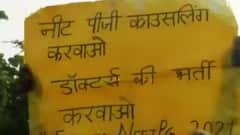 नीट पीजी काउसलिंग
करवाओ
डॉक्टर्स की भर्ती
करवाओ